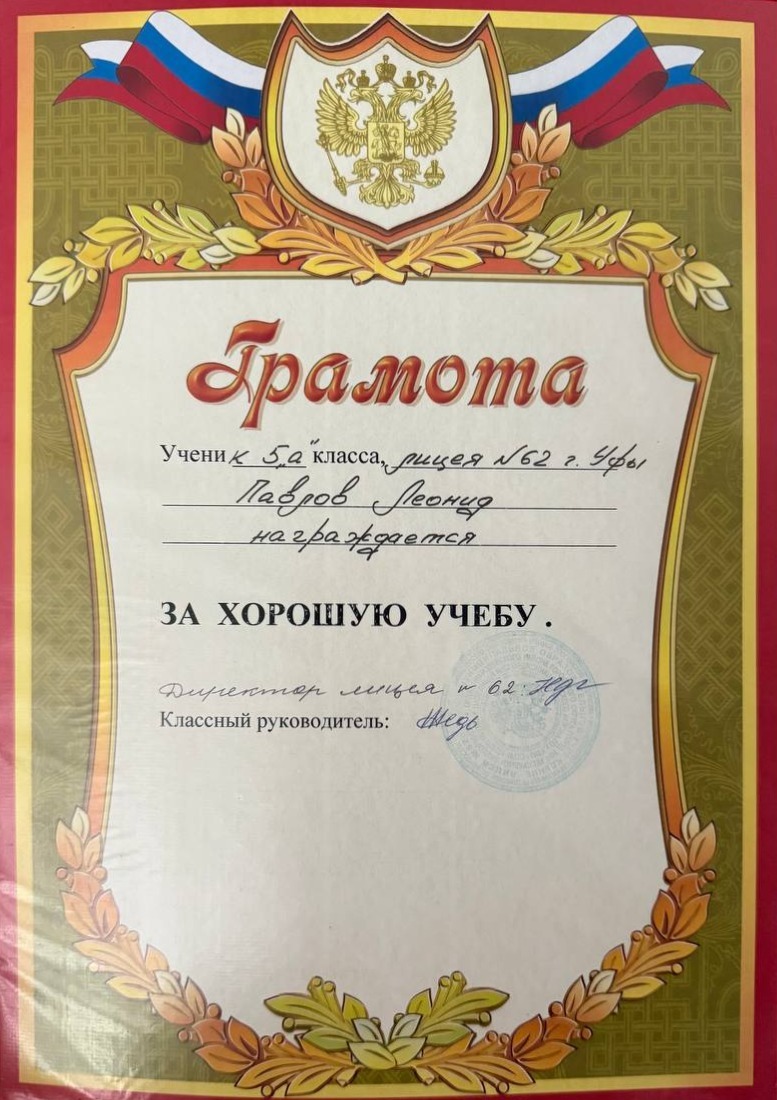 Грамота
Ученик 5 „а" класса, лицея №62 г. Уфы
Павлов Леонид
награждается
ЗА ХОРОШУЮ УЧЕБУ.
Директор лицея № 62:
Классный руководитель: